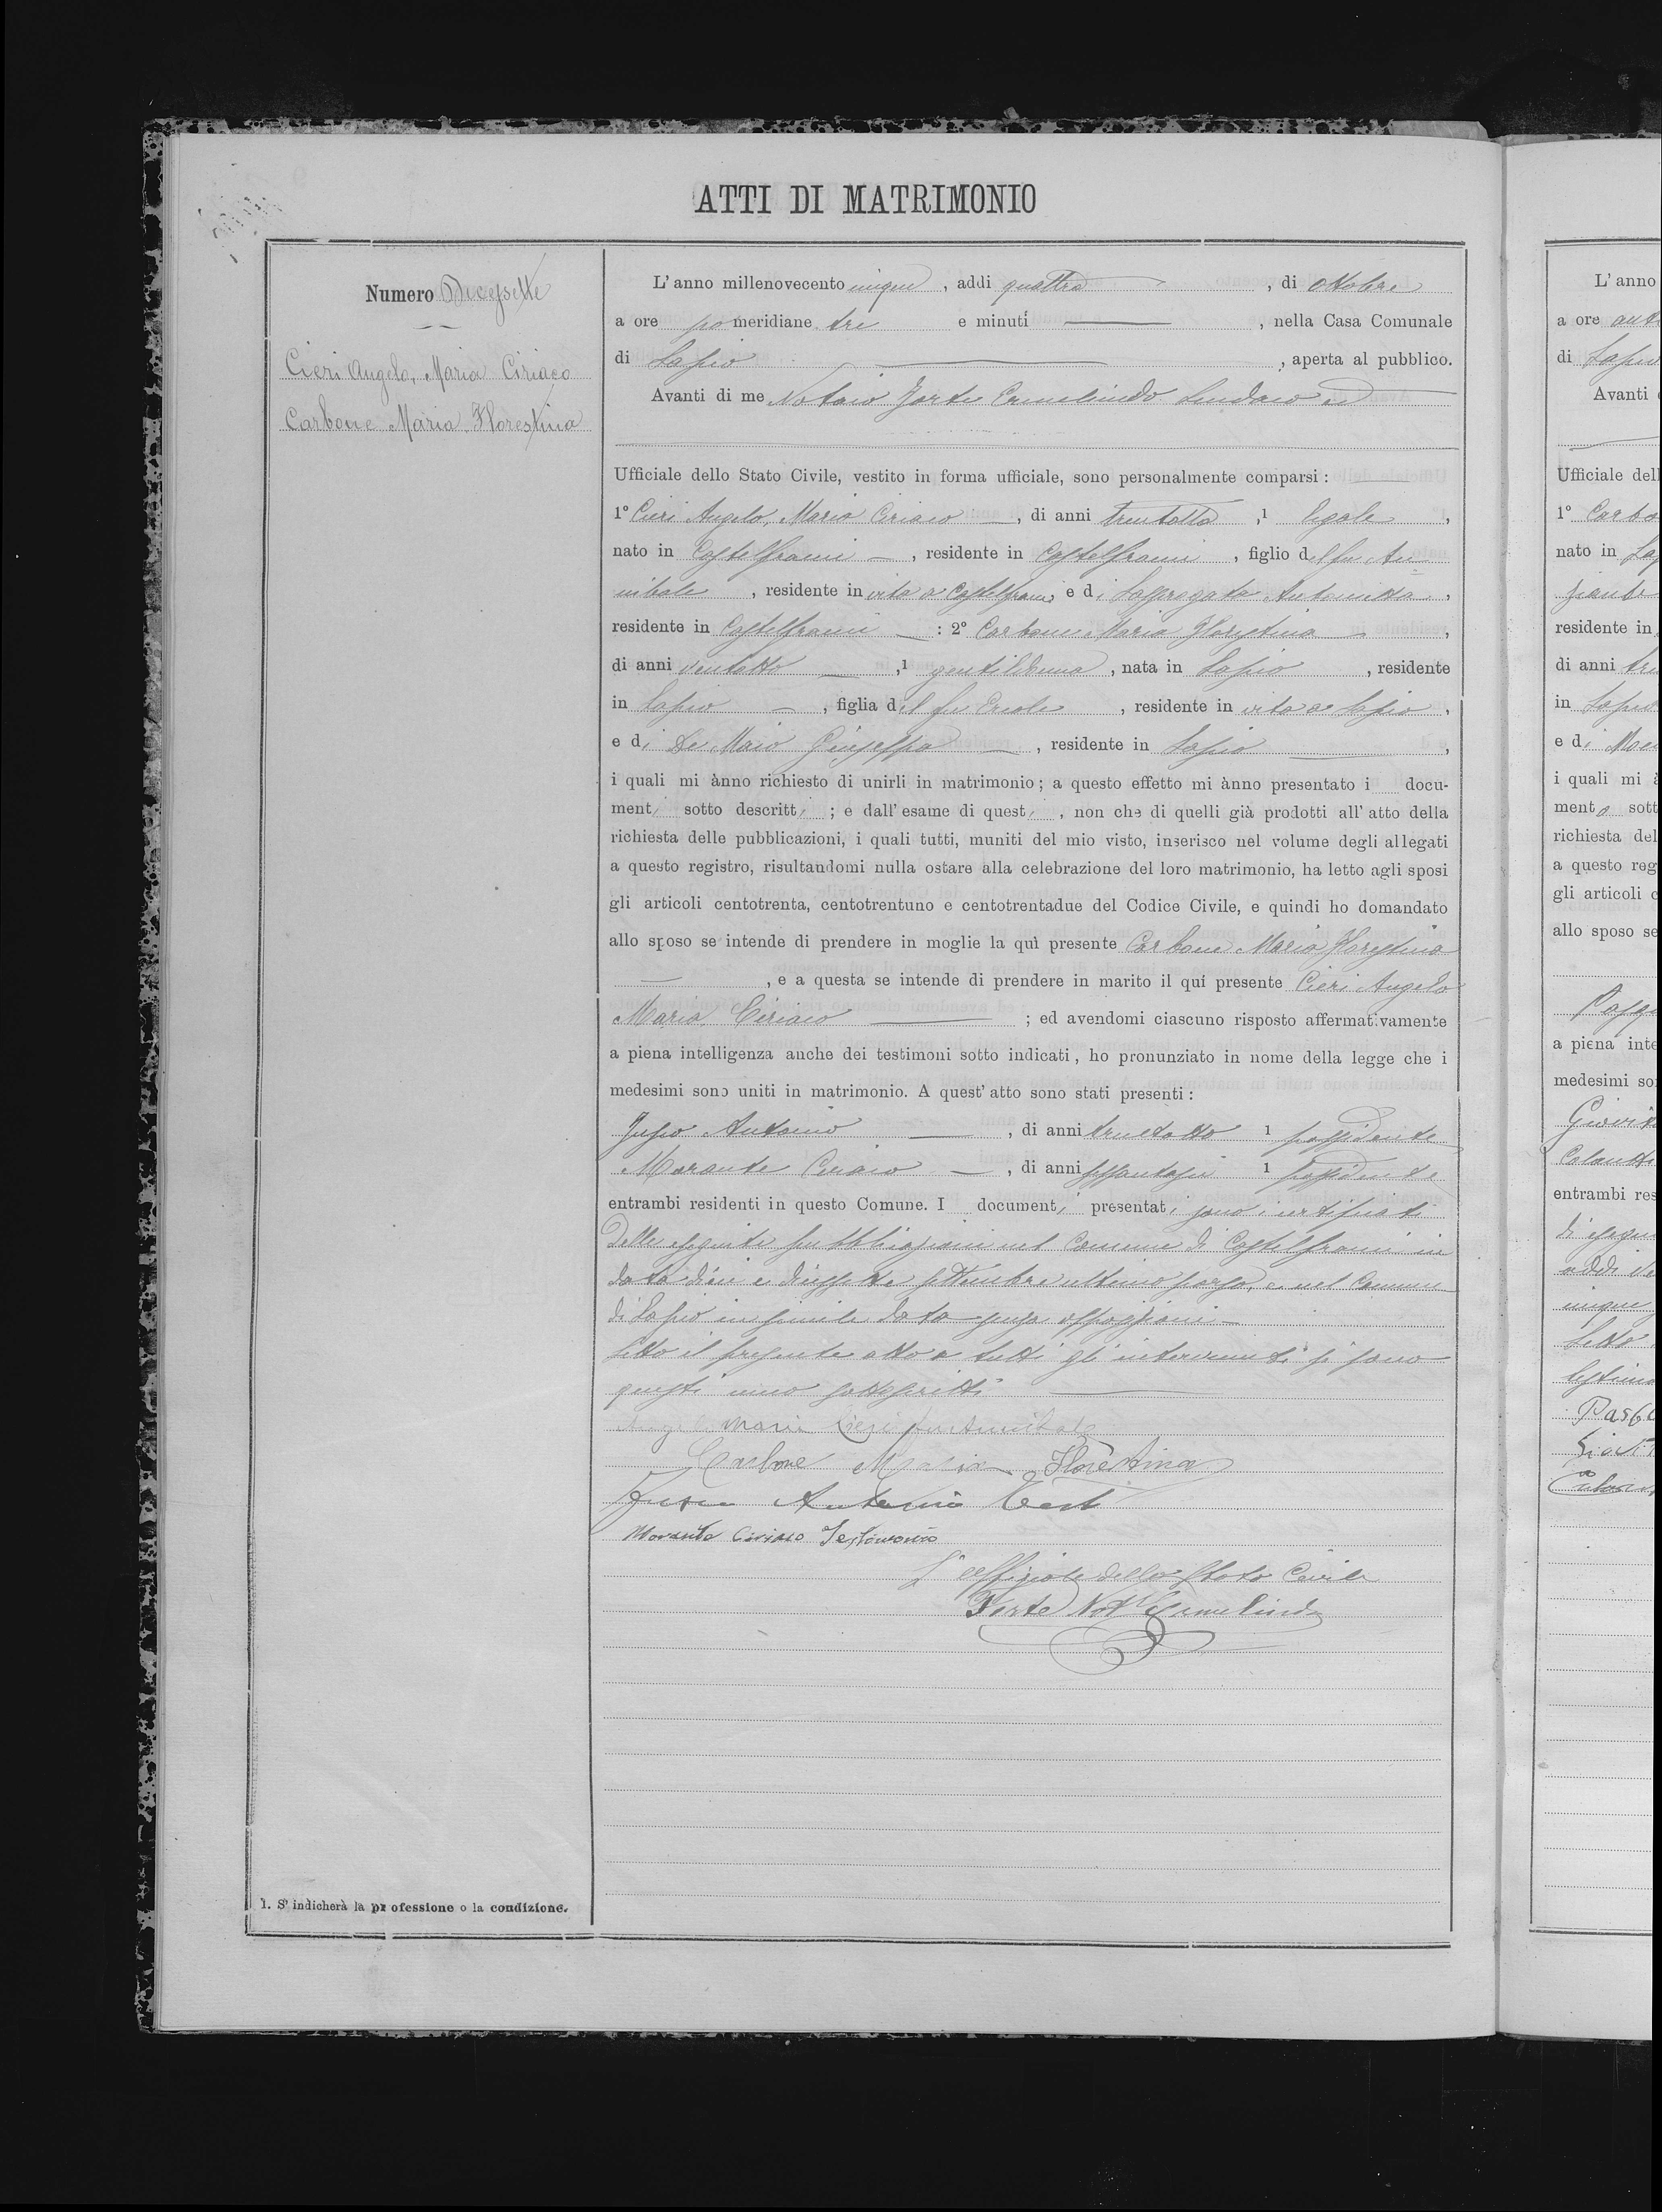 ATTI DI MATRIMONIO
Numero Diciassette
Cieri Angelo, Maria Ciriaco
Carbone Maria Florestina
L'anno millenovecento cinque, addi quattro, di ottobre
a ore pomeridiane tre e minuti, nella Casa Comunale
di Lapio, aperta al pubblico.
Avanti di me Notaio Forte Ermelindo Sindaco ed
Ufficiale dello Stato Civile, vestito in forma ufficiale, sono personalmente comparsi:
1° Cieri Angelo, Maria Ciriaco, di anni trentotto, 1 legale,
nato in Castelfranci, residente in Castelfranci, figlio del fu An-
nibale, residente in vita a Castelfranci, e di Antonietta,
residente in Castelfranci: 2° Carbone Maria Florestina,
di anni ventotto, 1 gentildonna, nata in Lapio, residente
in Lapio, figlia del fu Ercole, residente in vita a Lapio,
e di De Maio Giuseppa, residente in Lapio,
i quali mi ànno richiesto di unirli in matrimonio; a questo effetto mi ànno presentato i docu-
menti sotto descritti; e dall'esame di questi, non che di quelli già prodotti all'atto della
richiesta delle pubblicazioni, i quali tutti, muniti del mio visto, inserisco nel volume degli allegati
a questo registro, risultandomi nulla ostare alla celebrazione del loro matrimonio, ha letto agli sposi
gli articoli centotrenta, centotrentuno e centotrentadue del Codice Civile, e quindi ho domandato
allo sposo se intende di prendere in moglie la quì presente Carbone Maria Florestina
, e a questa se intende di prendere in marito il quí presente Cieri Angelo
Maria Ciriaco; ed avendomi ciascuno risposto affermativamente
a piena intelligenza anche dei testimoni sotto indicati, ho pronunziato in nome della legge che i
medesimi sono uniti in matrimonio. A quest'atto sono stati presenti:
Antonio, di anni trentotto 1 possidente
Morante Ciriaco, di anni sessantasei 1 possidente
entrambi residenti in questo Comune. I documenti presentati sono i certificati
delle eseguite pubblicazioni nel Comune di Castelfranci in
data dieci e diciassette settembre ultimo scorso, e nel Comune
di Lapio in simile data senza opposizioni
Letto il presente atto a tutti gli intervenuti si sono
questi meco sottoscritti
Angelo Maria Cieri fu Annibale
Carbone Maria Florestina
Antonio Test
Morante Ciriaco Testimonio
L'Uffiziale dello Stato Civile
Forte Not Ermelindo
1. S'indicherà la professione o la condizione.
L'anno
a ore ant
di Lapio
Avanti
Ufficiale dell
1° Carbo
nato in La
residente in
di anni tre
in Lapio
e di
i quali mi
mento sott
richiesta del
a questo reg
gli articoli c
allo sposo se
a piena inte
medesimi so
entrambi res
di esegui
cinque
Letto